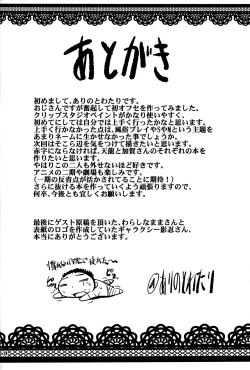 あとがき
初めまして、ありのとわたりです。
おじさんですが奮起して初オフセを作ってみました。
クリップスタジオペイントがかなり使いやすく、
初めてにしては自分では上手く行ったかなと思います。
上手く行かなかった点は、風俗プレイやSやMという主題を
あまりネームに生かせなかった事でしょうか。
次回はそこら辺を気をつけて描きたいと思います。
赤字にならなければ、天龍と加賀さんのそれぞれの本を
作りたいと思います。
やはりこの二人も外せないほど好きです。
アニメの二期や劇場も楽しみです。
（一期の反省点が活かされてることに期待！）
さらに抜ける本を作っていくよう頑張りますので、
何卒、今後とも宜しくお願い致します。
最後にゲスト原稿を頂いた、わらしなままさんと
表紙のロゴを作成していたギャラクシー影忍さん、
本当にありがとうございます。
@ありのとわたり